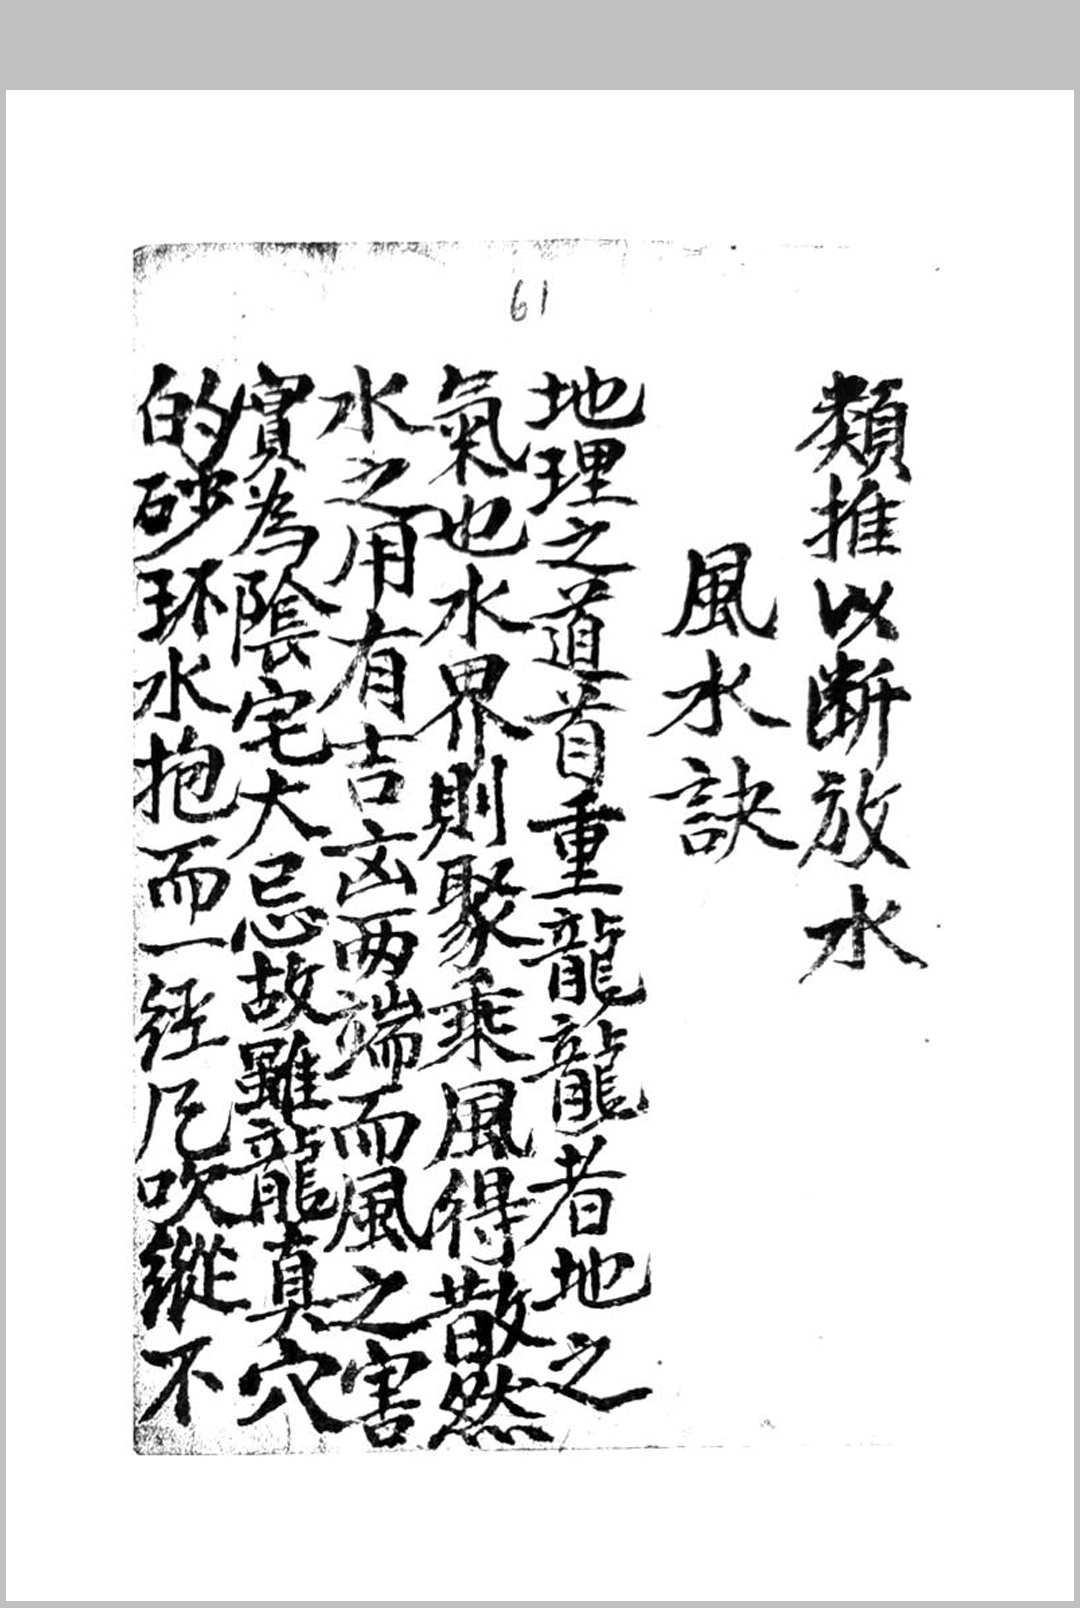 61
類推以断放水
風水訣
地理之道首重龍龍者地之
氣也水界則聚乘風得散然
水之用有吉凶两端而風之害
實為陰宅大忌故雖龍真穴
的砂环水抱而一經風吹縱不